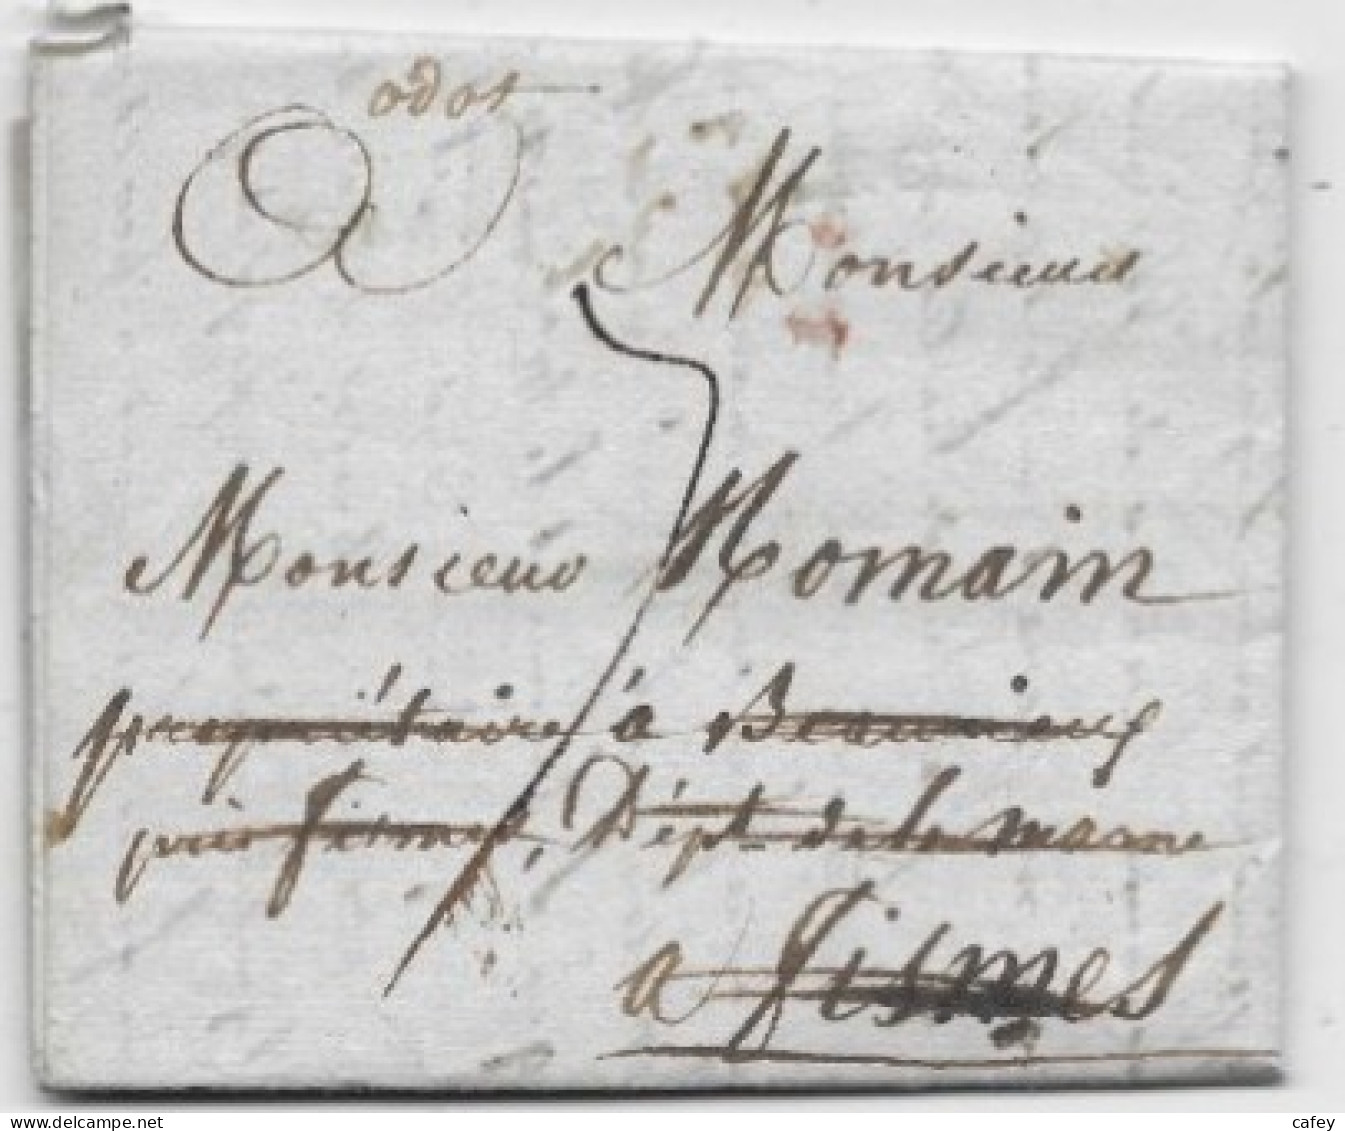 odot
Monsieur
Monsieur Romain
propriétaire à
près fismes, Dépt. de la marne
a fismes
delcampe.net
cafey